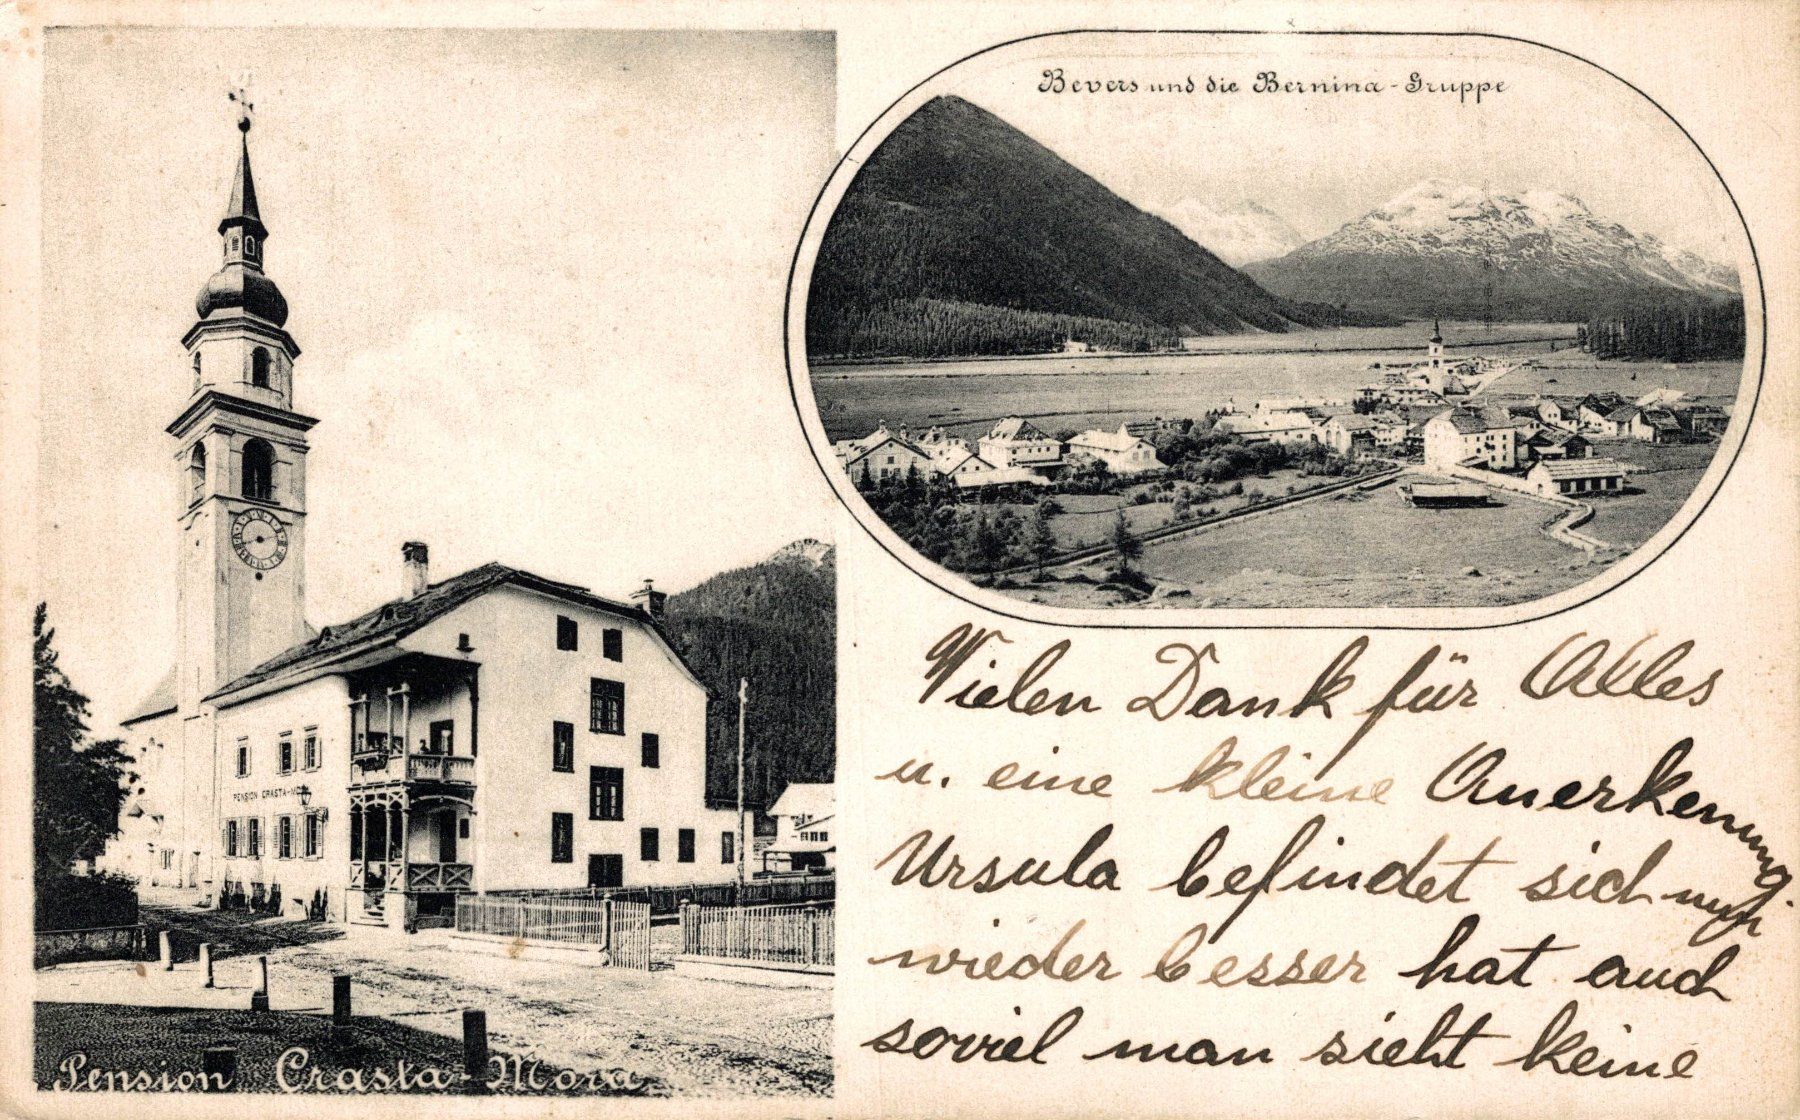 Bevers und die Bernina-Gruppe
PENSION CRASTA-MORA
Pension Crasta-Mora
Vielen Dank für Alles
u. eine kleine Anerkennung.
Ursula befindet sich nun
wieder besser hat auch
soviel man sieht keine